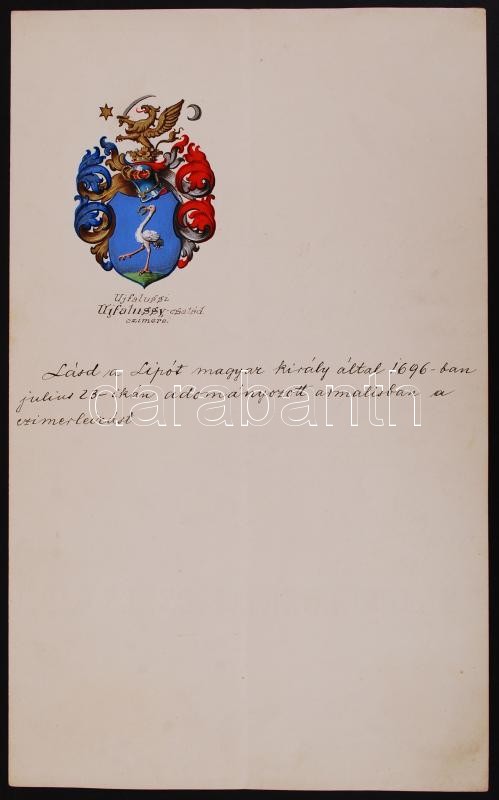 Ujfalussi
Ujfalussy-család
czimere.
Lásd a Lipót magyar király által 1696-ban
julius 23-ikán adományozott armálisban a
czimerleirást
darabanth